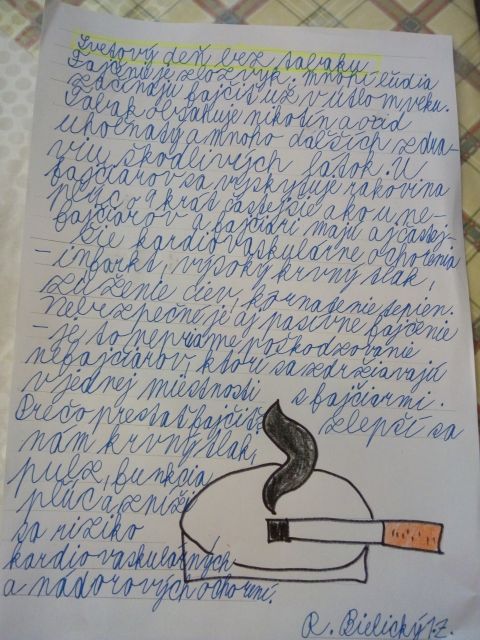 Svetový deň bez tabaku
Fajčenie je zlozvyk. Mnohí ľudia
začínajú fajčiť už v útlom veku.
Tabak obsahuje nikotín a oxid
uhoľnatý a mnoho ďalších zdra-
viu škodlivých látok. U
fajčiarov sa vyskytuje rakovina
pľúc 9 krát častejšie ako u ne-
fajčiarov a fajčiari majú aj častej-
šie kardiovaskulárne ochorenia
- infarkt, vysoký krvný tlak,
zúženie ciev, kôrnatenie tepien.
Nebezpečné je aj pasívne fajčenie
- je to nepriame poškodzovanie
nefajčiarov, ktorí sa zdržiavajú
v jednej miestnosti s fajčiarmi.
Prečo prestať fajčiť? Zlepší sa
nám krvný tlak,
pulz, funkcia
pľúc a zníži
sa riziko
kardiovaskulárnych
a nádorových ochorení.
R. Bielický I.Z.